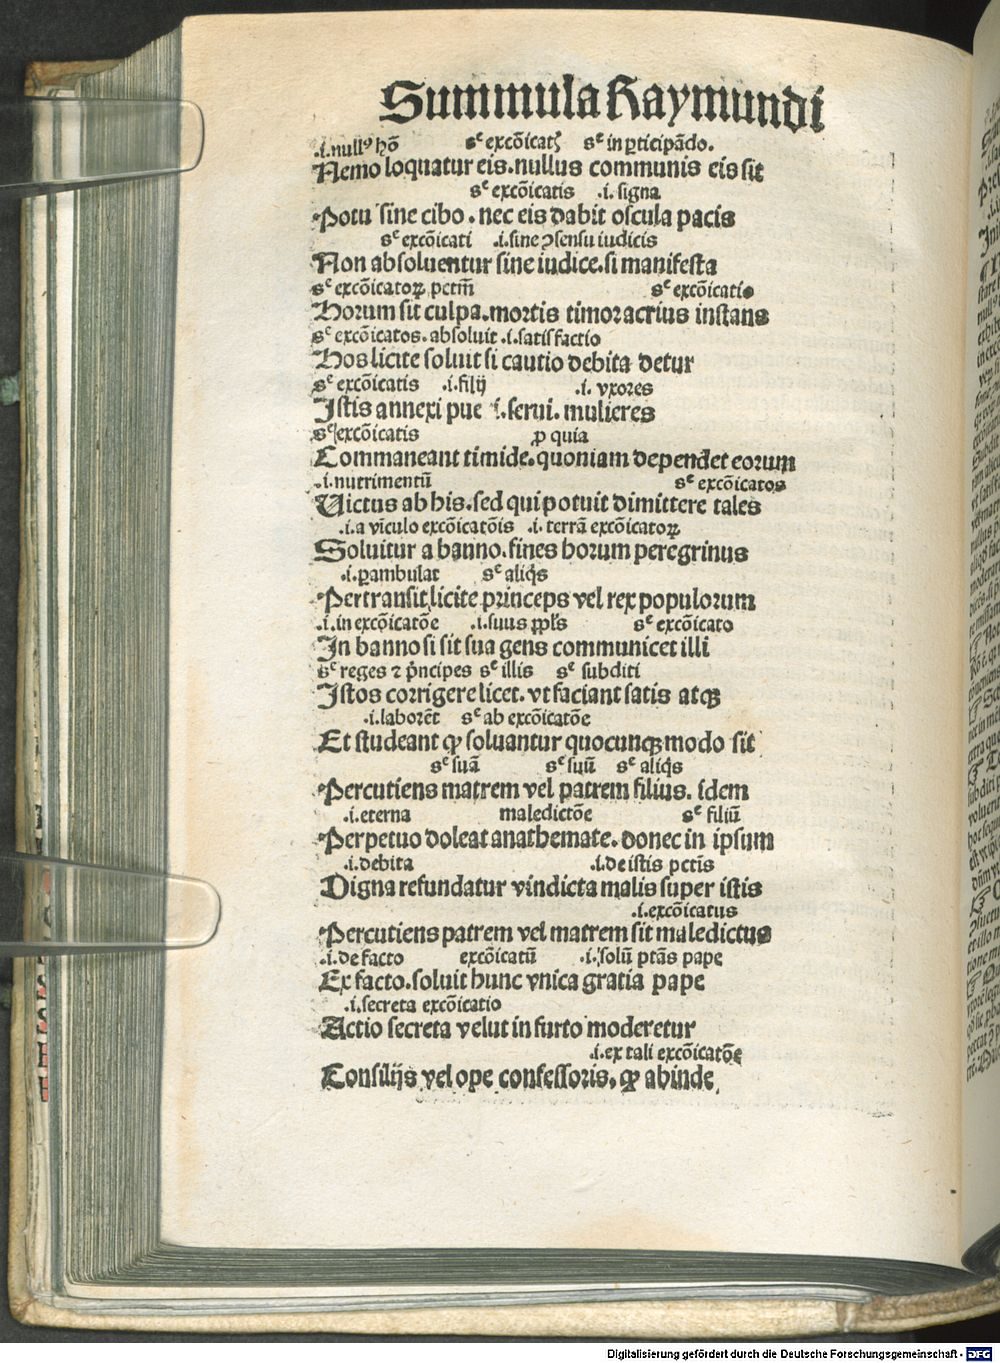 Summula Raymundi
.i. nullꝰ hō sᶜ excōicatꝭ sᶜ in ꝑticipādo.
Nemo loquatur eis. nullus communis eis sit
sᶜ excōicatis .i. signa
Potu sine cibo. nec eis dabit oscula pacis
sᶜ excōicati .i. sine ↄsensu iudicis
Non absoluentur sine iudice. si manifesta
sᶜ excōicatoꝝ pctm̄ sᶜ excōicatis
Horum sit culpa. mortis timor acrius instans
sᶜ excōicatos. absoluit .i. satisfactio
Hos licite soluit si cautio debita detur
sᶜ excōicatis .i. filij .i. vxores
Istis annexi pue i. serui. mulieres
sᶜ excōicatis ꝓ quia
Commaneant timide. quoniam dependet eorum
.i. nutrimentū sᶜ excōicatos
Uictus ab his. sed qui potuit dimittere tales
.i. a vīculo excōicatōis .i. terrā excōicatoꝝ
Soluitur a banno. fines horum peregrinus
.i. ꝑambulat sᶜ aliqs
Pertransit licite princeps vel rex populorum
.i. in excōicatōe .i. suus ppls sᶜ excōicato
In banno si sit sua gens communicet illi
sᶜ reges ⁊ pncipes sᶜ illis sᶜ subditi
Istos corrigere licet. vt faciant satis atqꝫ
.i. laborēt sᶜ ab excōicatōe
Et studeant ꝙ soluantur quocunqꝫ modo sit
sᶜ suā sᶜ suū sᶜ aliqs
Percutiens matrem vel patrem filius. idem
.i. eterna maledictōe sᶜ filiū
Perpetuo doleat anathemate. donec in ipsum
.i. debita .i. de istis pctīs
Digna refundatur vindicta malis super istis
.i. excōicatus
Percutiens patrem vel matrem sit maledictus
.i. de facto excōicatū .i. solū ptās pape
Ex facto. soluit hunc vnica gratia pape
.i. secreta excōicatio
Actio secreta velut in furto moderetur
.i. ex tali excōicatōe
Consilijs vel ope confessoris. ꝙ abinde
Digitalisierung gefördert durch die Deutsche Forschungsgemeinschaft - DFG